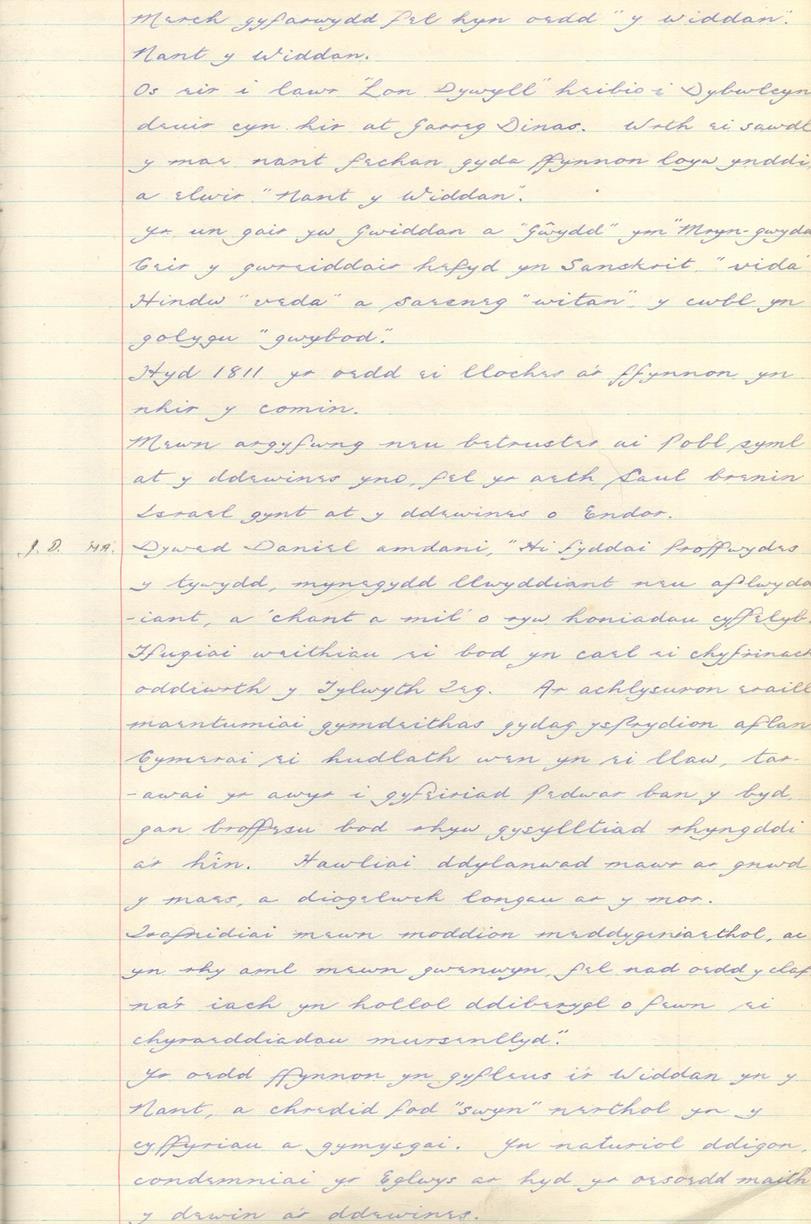 Merch gyfarwydd fel hyn oedd "y widdan".
Nant y Widdan.
Os eir i lawr "Lon Dywyll" heibio i Dybwlcyn
deuir cyn hir at Garreg Dinas. Wrth ei sawdl
y mae nant fechan gyda ffynnon loyw ynddi,
a elwir "Nant y Widdan".
Yr un gair yw Gwiddan a "Gŵydd" ym "Mryn-gwydd
Ceir y gwreiddair hefyd yn Sanskrit "vida"
Hindw "veda" a Saesneg "witan" y cwbl yn
golygu "gwybod".
Hyd 1811 yr oedd ei lloches a'r ffynnon yn
nhir y comin.
Mewn argyfwng neu betruster ai pobl syml
at y ddewines yno, fel yr aeth Saul brenin
Israel gynt at y ddewines o Endor.
J. D. M.A. Dywed Daniel amdani, "Hi fyddai proffwydes
y tywydd, mynegydd llwyddiant neu aflwydd
-iant, a 'chant a mil' o ryw honiadau cyffelyb.
Ffugiai weithiau ei bod yn cael ei chyfrinach
oddiwrth y Tylwyth Teg. Ar achlysuron eraill
maentumiai gymdeithas gydag ysprydion aflan
Cymerai ei hudlath wen yn ei llaw, tar-
-awai yr awyr i gyfeiriad Pedwar ban y byd,
gan broffesu bod rhyw gysylltiad rhyngddi
a'r hîn. Hawliai ddylanwad mawr ar gnwd
y maes, a diogelwch longau ar y mor.
Trafnidiai mewn moddion meddyginiaethol, ac
yn rhy aml mewn gwenwyn, fel nad oedd y claf
na'r iach yn hollol ddiberygl o fewn ei
chyraeddiadau mursenllyd."
Yr oedd ffynnon yn gyfleus i'r Widdan yn y
Nant, a chredid fod "swyn" nerthol yn y
cyffyriau a gymysgai. Yn naturiol ddigon,
condemniai yr Eglwys ar hyd yr oesoedd maith
y dewin a'r ddewines.